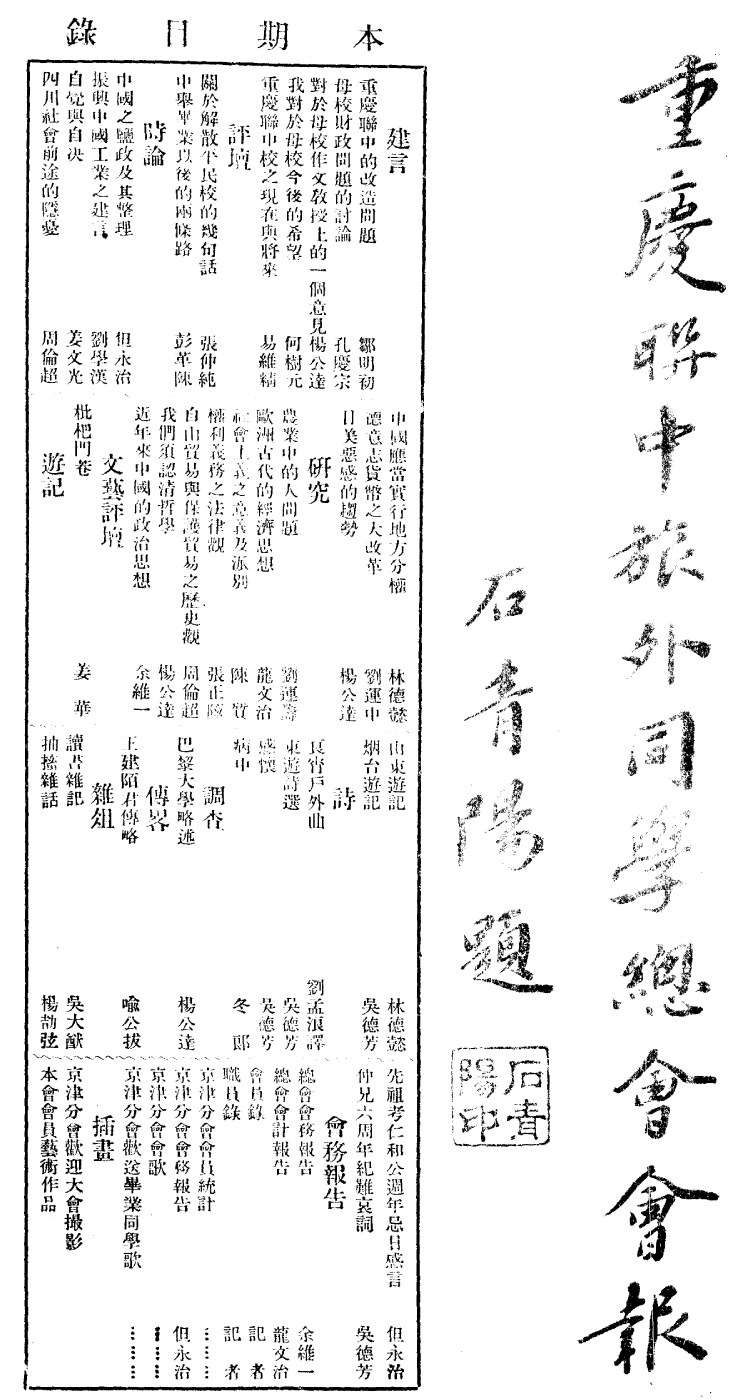 重慶聯中旅外同學總會會報
石青陽題
石青陽印
本期目錄
建言
重慶聯中的改造問題 鄒明初
母校財政問題的討論 孔慶宗
對於母校作文教授上的一個意見 楊公達
我對於母校今後的希望 何樹元
重慶聯中校之現在與將來 易維精
評壇
關於解散平民校的幾句話 張仲純
中學畢業以後的兩條路 彭革陳
時論
中國之鹽政及其整理 但永治
振興中國工業之建言 劉學漢
自覺與自决 姜文光
四川社會前途的隱憂 周倫超
中國應當實行地方分權 林德懿
德意志貨幣之大改革 劉運中
日美惡感的趨勢 楊公達
研究
農業中的人問題 劉運籌
歐洲古代的經濟思想 龍文治
社會主義之意義及派別 陳質
權利義務之法律觀 張正
自由貿易與保護貿易之歷史觀 周倫超
我們須認清哲學 楊公達
近年來中國的政治思想 余維一
文藝評壇
枇杷門巷 姜華
遊記
山東遊記 林德懿
烟台遊記 吳德芳
詩
良宵戶外曲 劉孟浪譯
東遊詩選 吳德芳
感懷 吳德芳
病中 冬郎
調查
巴黎大學略述 楊公達
傳畧
王建陌君傳略 喩公拔
雜俎
讀書雜記 吳大猷
抽搐雜話 楊劼弦
先祖考仁和公週年忌日感言 但永治
仲兄六周年紀難哀詞 吳德芳
會務報告
總會會務報告 余維一
總會會計報告 龍文治
會員錄 記者
職員錄 記者
京津分會會員統計 ⋯⋯
京津分會會務報告 但永治
京津分會會歌 ⋯⋯
京津分會歡送畢業同學歌 ⋯⋯
插畫
京津分會歡迎大會撮影
本會會員藝術作品